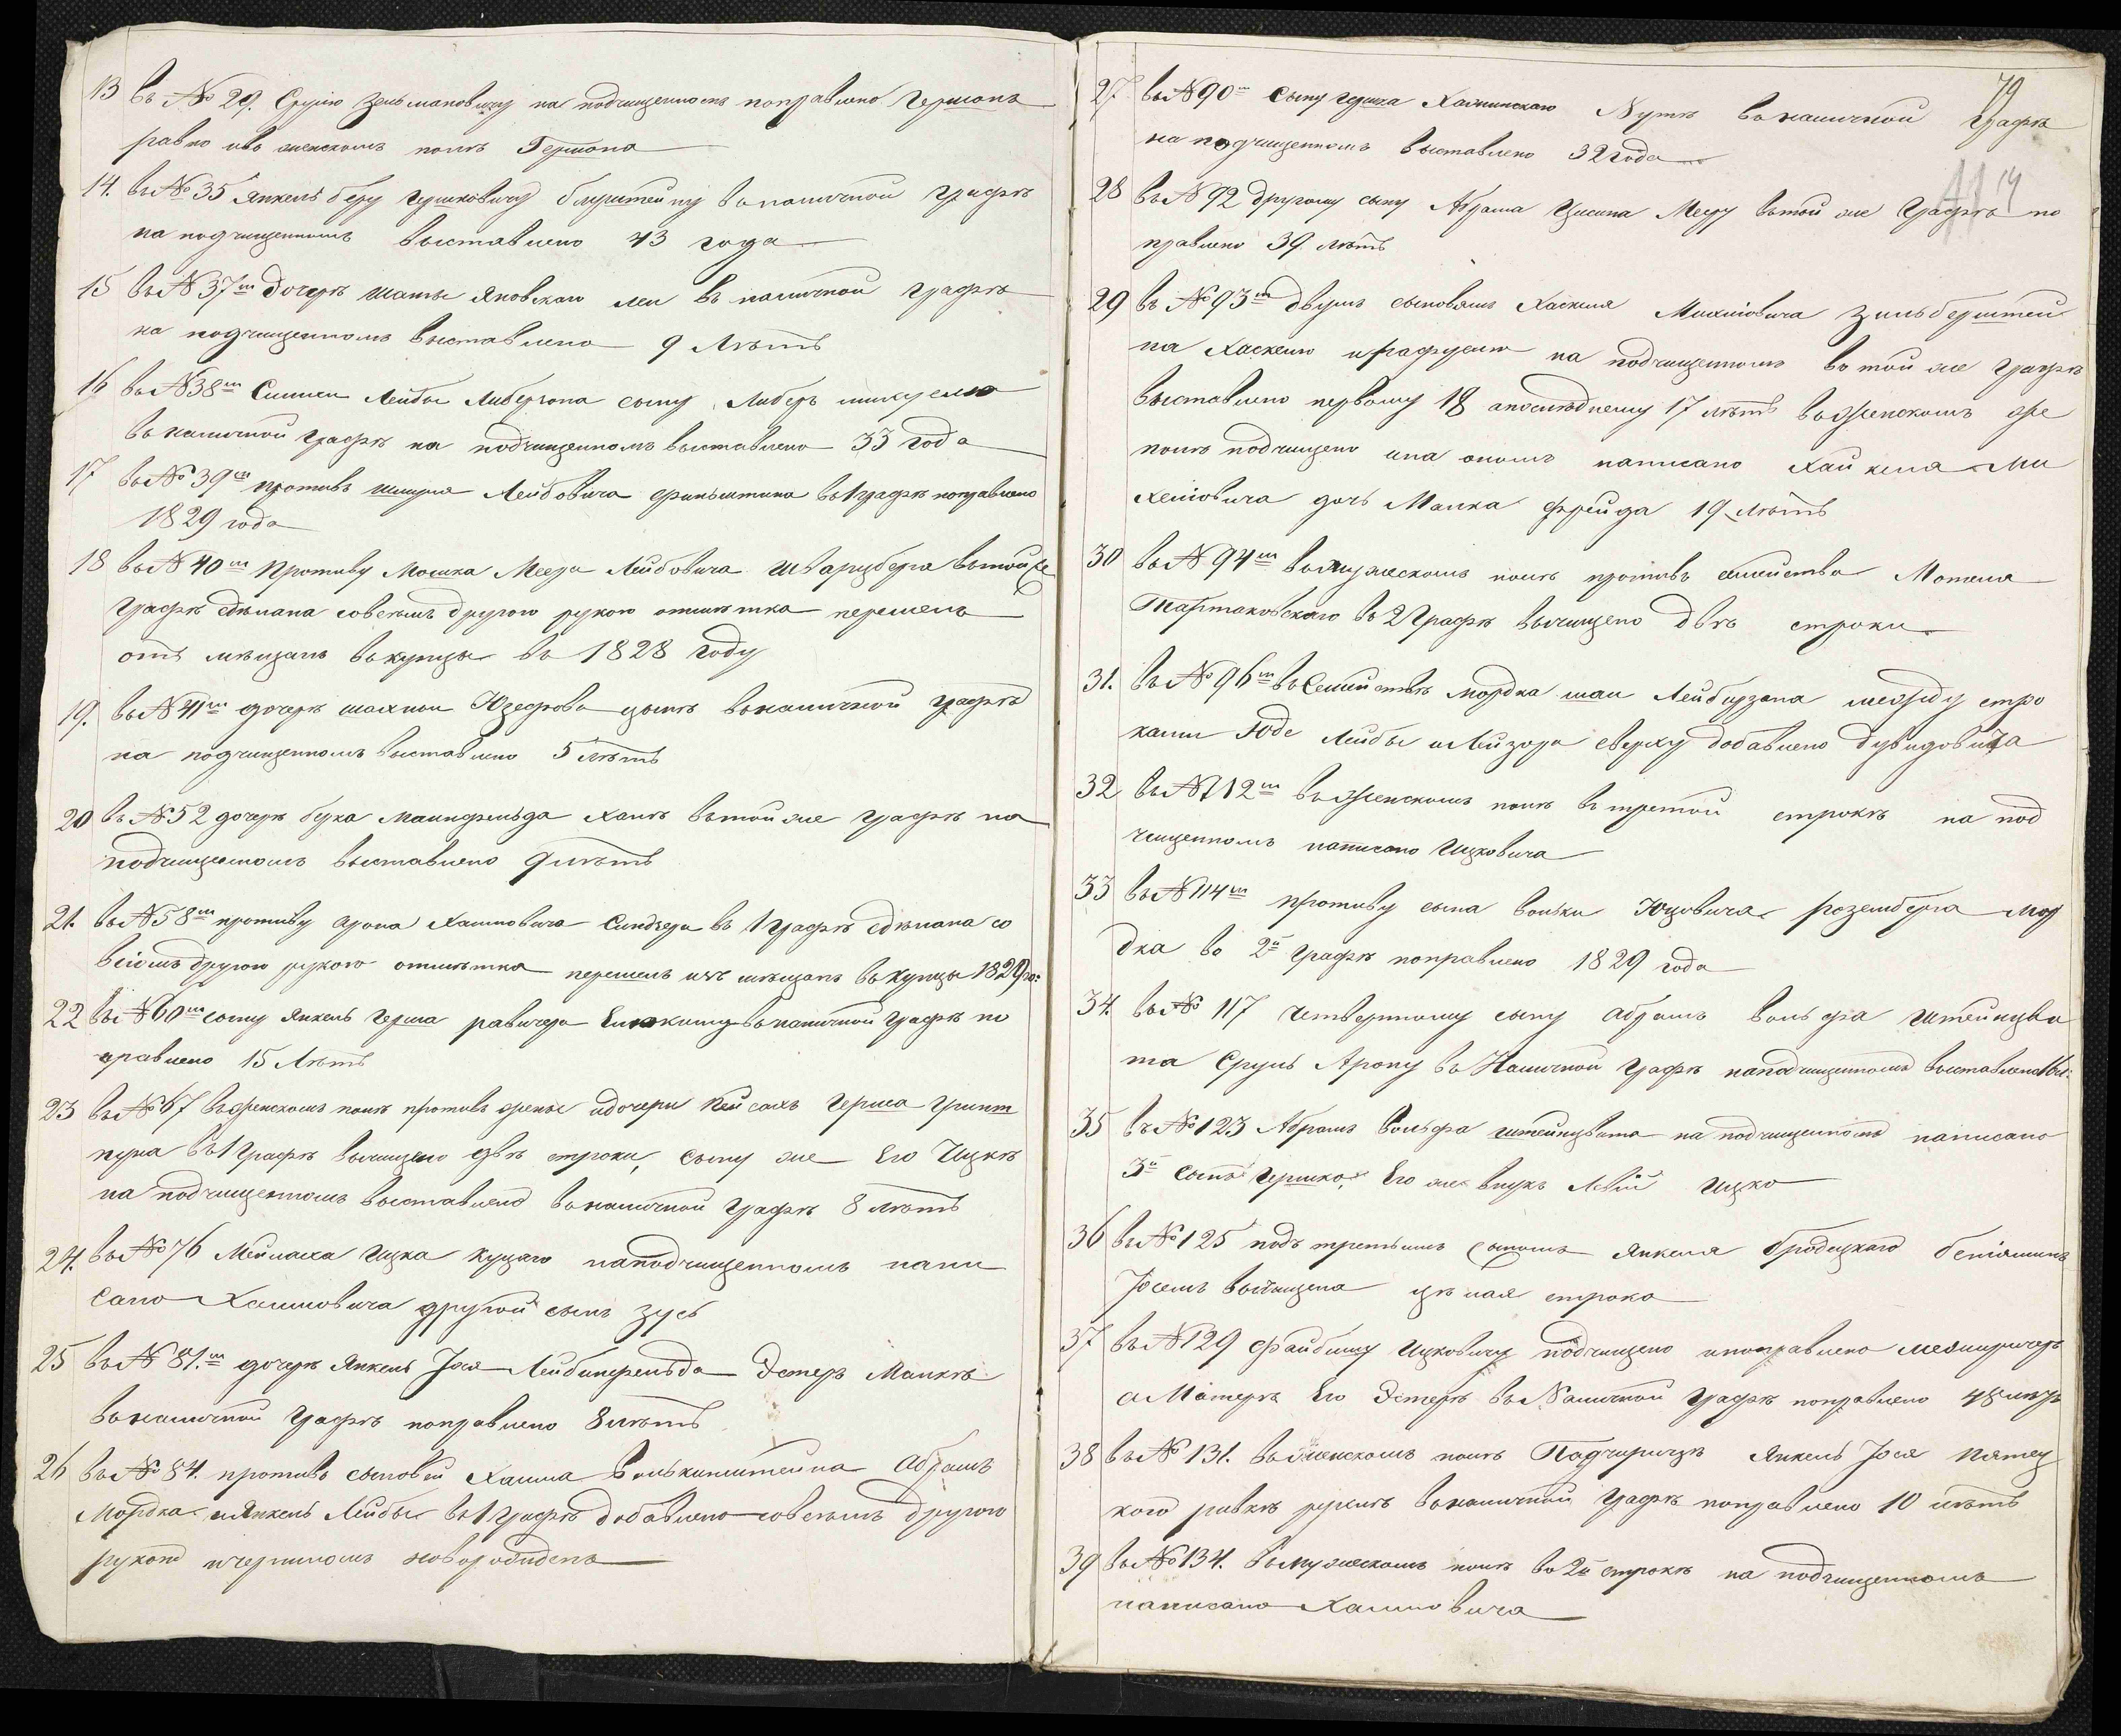 13 въ № 29. Срулю Зельмановичу на подчищенномъ поправлено Гершонъ
равно ивъ женскомъ полѣ Гершона
14. въ № 35 Янкель беру Гершковичу въ наличной графѣ
на подчищенномъ выставлено 43 года
15 въ № 37м дочерѣ Яновскаго Леи въ наличной графѣ
на подчищенномъ выставлено 9 лѣтъ
16 въ № 38м Лейбы Либерзона сыну Либеръ
въ наличной графѣ на подчищенномъ выставлено 33 года
17 въ № 39м противъ Шмуля Лейбовича въ 1 графѣ поправлено
1829 года
18 въ № 40м противу Мошка Меера Лейбовича Шварцберга вътой же
графѣ сдѣлана совсемъ другою рукою отмѣтка перешелъ
отъ мѣщанъ въ купцы въ 1828 году
19. въ № 41м дочерѣ въ наличной графѣ
на подчищенномъ выставлено 5 лѣтъ
20 въ № 52 дочерѣ берка Хаитъ вътой же графѣ на
подчищенномъ выставлено 9 лѣтъ
21. въ № 58м противу Арона Хаимовича въ 1 графѣ сдѣлана со
всiомъ другою рукою отмѣтка перешелъ изъ мѣщанъ въ купцы 1829 го:
22 въ № 60м сыну Янкель Герша въ наличной графѣ по
правлено 15 лѣтъ
23 въ № 67 въ женскомъ полѣ противъ жены идочери Герша
въ 1 графѣ вычищено двѣ строки, сыну же Его Ицкѣ
на подчищенномъ выставлено въ наличной графѣ 8 лѣтъ
24. въ № 76 Мейлаха Ицка Куцаго наподчищенномъ напи
сано Хаимовича другой сынъ Зусь
25 въ № 81.м дочерѣ Янкель Іося Эстеръ Малкѣ
въ наличной графѣ поправлено 8 лѣтъ
26 въ № 84. противъ сыновей Хаима Абрамъ
Мордка иЯнкель Лейбы въ 1 графѣ добавлено совсемъ другою
рукою ичерниломъ новорожденъ
79
27. въ № 90м сыну Герша Нутѣ въ наличной графѣ
на подчищенномъ выставлено 32 года
28 въ № 92 другому сыну Абрама Мееру вътой же графѣ по
правлено 39 лѣтъ
29 въ № 93м двумъ сыновямъ Хаскеля Михлiовича Зильберштей
на Хаскелю ирафуелю на подчищенномъ во той же графѣ
выставлено первому 18 апослѣднему 17 лѣтъ въ женскомъ же
полѣ подчищено ина ономъ написано Ми
хелiовича дочь Малка Фрейда 19 лѣтъ
30 въ № 94м въ мужескомъ полѣ противъ семейства Мотеля
Тартаковскаго въ 2 графѣ вычищено двѣ строки
31. въ № 96м въ Семействѣ Мордка между стро
ками Юде Лейбы иЛейзора сверху добавлено дувидовича
32 въ № 112м въ женскомъ полѣ въ третой строкѣ на под
чищенномъ написано Ицковича
33 въ № 114м противу сына Вольки Юцовича Розенберга Мор
дка во 2й графѣ поправлено 1829 года
34. въ № 117 четвертому сыну Абрамъ Вольфа Штейнцва
та Сруль Арону въ Наличной графѣ наподчищенномъ выставлено
35 въ № 123 Абрамъ Вольфа Штейнцвата на подчищенномъ написано
3й сынъ Гершко, Его же внукъ Ицко
36 въ № 125 подъ третьимъ сыномъ Янкеля бродецкаго бенiяминъ
Іосемъ вычищена цѣлая строка
37 въ № 129 Файбишу Ицковичу подчищено ипоправлено
аМатерѣ Его Эстерѣ въ Наличной графѣ поправлено 48
38 въ № 131. въ женскомъ полѣ Падчирицѣ Янкель Іося
кого ривкѣ въ наличной графѣ поправлено 10 лѣтъ
39 въ № 134. въ мужескомъ полѣ во 2й строкѣ на подчищенномъ
написано Хаимовича